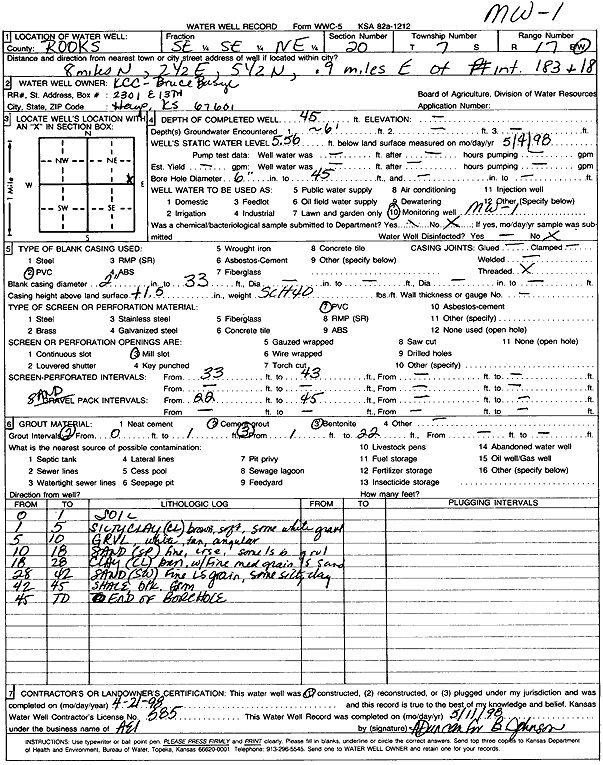 MW-1
WATER WELL RECORD Form WWC-5 KSA 82a-1212
1 LOCATION OF WATER WELL: Fraction Section Number Township Number Range Number
County: ROOKS SE ¼ SE ¼ NE ¼ 20 T 7 S R 17 E/W
Distance and direction from nearest town or city street address of well if located within city?
8 miles N, 2 1/2 E, 5 1/2 N, .9 miles E of int. 183 + 18
2 WATER WELL OWNER: KCC - Bruce
RR#, St. Address, Box # : 2301 E 13TH Board of Agriculture, Division of Water Resources
City, State, ZIP Code : Hays, KS 67601 Application Number:
3 LOCATE WELL'S LOCATION WITH AN "X" IN SECTION BOX:
N
NW NE
W E
X
SW SE
S
1 Mile
4 DEPTH OF COMPLETED WELL 45 ft. ELEVATION: —
Depth(s) Groundwater Encountered 1 ~6' ft. 2 — ft. 3 — ft.
WELL'S STATIC WATER LEVEL 5.56 ft. below land surface measured on mo/day/yr 5/4/98
Pump test data: Well water was — ft. after — hours pumping — gpm
Est. Yield — gpm: Well water was — ft. after — hours pumping — gpm
Bore Hole Diameter 6" in. to 45 ft., and — in. to — ft.
WELL WATER TO BE USED AS: 5 Public water supply 8 Air conditioning 11 Injection well
1 Domestic 3 Feedlot 6 Oil field water supply 9 Dewatering 12 Other (Specify below)
2 Irrigation 4 Industrial 7 Lawn and garden only 10 Monitoring well MW-1
Was a chemical/bacteriological sample submitted to Department? Yes No X; If yes, mo/day/yr sample was submitted
Water Well Disinfected? Yes — No X
5 TYPE OF BLANK CASING USED: 5 Wrought iron 8 Concrete tile CASING JOINTS: Glued — Clamped —
1 Steel 3 RMP (SR) 6 Asbestos-Cement 9 Other (specify below) Welded —
2 PVC 4 ABS 7 Fiberglass — Threaded X
Blank casing diameter 2" in. to 33 ft., Dia — in. to — ft., Dia — in. to — ft.
Casing height above land surface +1.5 in., weight SCH40 lbs./ft. Wall thickness or gauge No. —
TYPE OF SCREEN OR PERFORATION MATERIAL: 7 PVC 10 Asbestos-cement
1 Steel 3 Stainless steel 5 Fiberglass 8 RMP (SR) 11 Other (specify) —
2 Brass 4 Galvanized steel 6 Concrete tile 9 ABS 12 None used (open hole)
SCREEN OR PERFORATION OPENINGS ARE: 5 Gauzed wrapped 8 Saw cut 11 None (open hole)
1 Continuous slot 3 Mill slot 6 Wire wrapped 9 Drilled holes
2 Louvered shutter 4 Key punched 7 Torch cut 10 Other (specify) —
SCREEN-PERFORATED INTERVALS: From 33 ft. to 43 ft., From — ft. to — ft.
From — ft. to — ft., From — ft. to — ft.
SAND
GRAVEL PACK INTERVALS: From 22 ft. to 45 ft., From — ft. to — ft.
From — ft. to — ft., From — ft. to — ft.
6 GROUT MATERIAL: 1 Neat cement 2 Cement grout 3 Bentonite 4 Other —
Grout Intervals: 2 From 0 ft. to 1 ft., 3 From 1 ft. to 22 ft., From — ft. to — ft.
What is the nearest source of possible contamination: 10 Livestock pens 14 Abandoned water well
1 Septic tank 4 Lateral lines 7 Pit privy 11 Fuel storage 15 Oil well/Gas well
2 Sewer lines 5 Cess pool 8 Sewage lagoon 12 Fertilizer storage 16 Other (specify below)
3 Watertight sewer lines 6 Seepage pit 9 Feedyard 13 Insecticide storage
Direction from well? How many feet?
FROM TO LITHOLOGIC LOG FROM TO PLUGGING INTERVALS
0 1 SOIL
1 5 SILTY CLAY (CL) brown, soft, some white
5 10 GRVL, white, tan, angular
10 18 SAND (SP) fine, crse, some ls
18 28 CLAY (CL) w/ fine med grain ls sand
28 42 SAND (SW) fine ls grain, some silty clay
42 45 SHALE drk.
45 TD END OF BOREHOLE
7 CONTRACTOR'S OR LANDOWNER'S CERTIFICATION: This water well was (1) constructed, (2) reconstructed, or (3) plugged under my jurisdiction and was
completed on (mo/day/year) 4-21-98 and this record is true to the best of my knowledge and belief. Kansas
Water Well Contractor's License No. 585 This Water Well Record was completed on (mo/day/yr) 5/11/98
under the business name of AEI by (signature) Duncan for B. Johnson
INSTRUCTIONS: Use typewriter or ball point pen. PLEASE PRESS FIRMLY and PRINT clearly. Please fill in blanks, underline or circle the correct answers. Send top three copies to Kansas Department
of Health and Environment, Bureau of Water, Topeka, Kansas 66620-0001. Telephone: 913-296-5545. Send one to WATER WELL OWNER and retain one for your records.